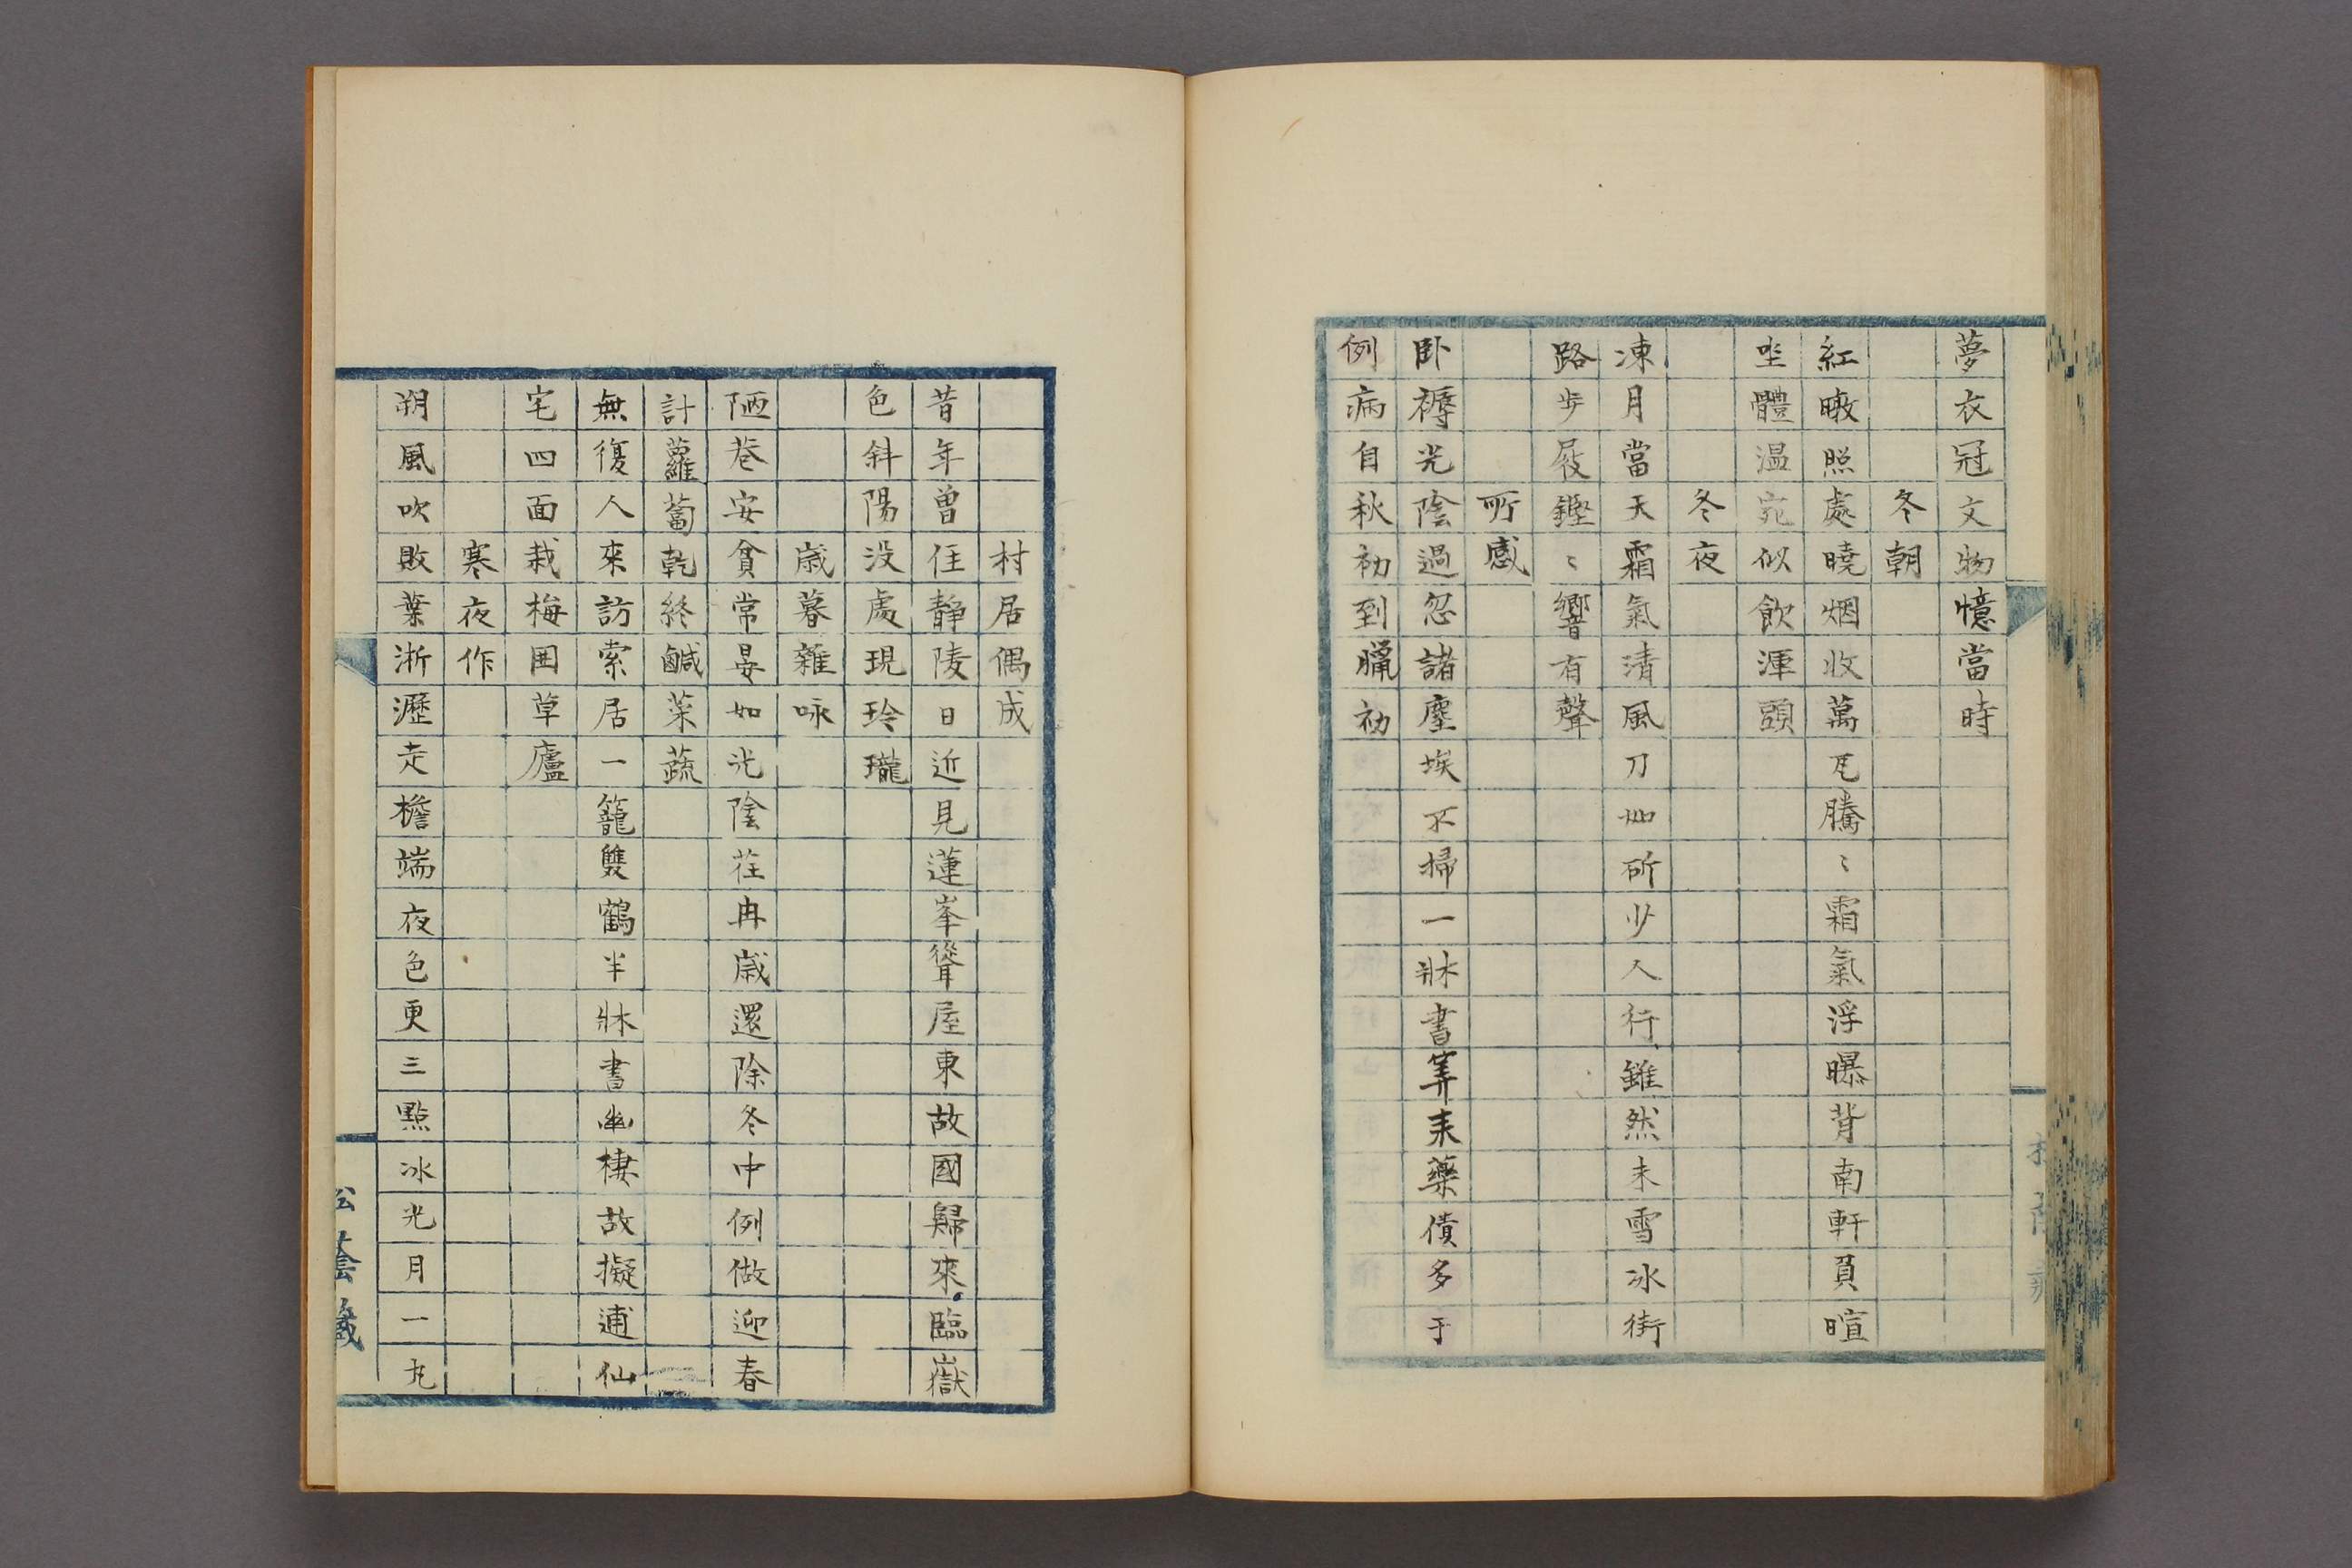 夢衣冠文物憶當時
冬朝
紅暾照處曉烟收萬瓦騰〻霜氣浮曝背南軒負暄
坐體温宛似飲渾頭
冬夜
凍月當天霜氣清風刀如斫少人行雖然未雪冰街
路步屐鏗〻響有聲
所感
卧褥光陰過忽諸塵埃不掃一牀書筭来藥債多于
例病自秋初到臘初
村居偶成
昔年曾住靜陵日近見蓮峯聳屋東故國歸來臨嶽
色斜陽没處現玲瓏
歲暮雜咏
陋巷安貧常晏如光陰荏冉歲還除冬中例做迎春
計蘿蔔乾終鹹菜蔬
無復人來訪索居一籠雙鶴半牀書幽棲故擬逋仙
宅四面栽梅囲草廬
寒夜作
朔風吹敗葉淅瀝走檐端夜色更三點冰光月一丸